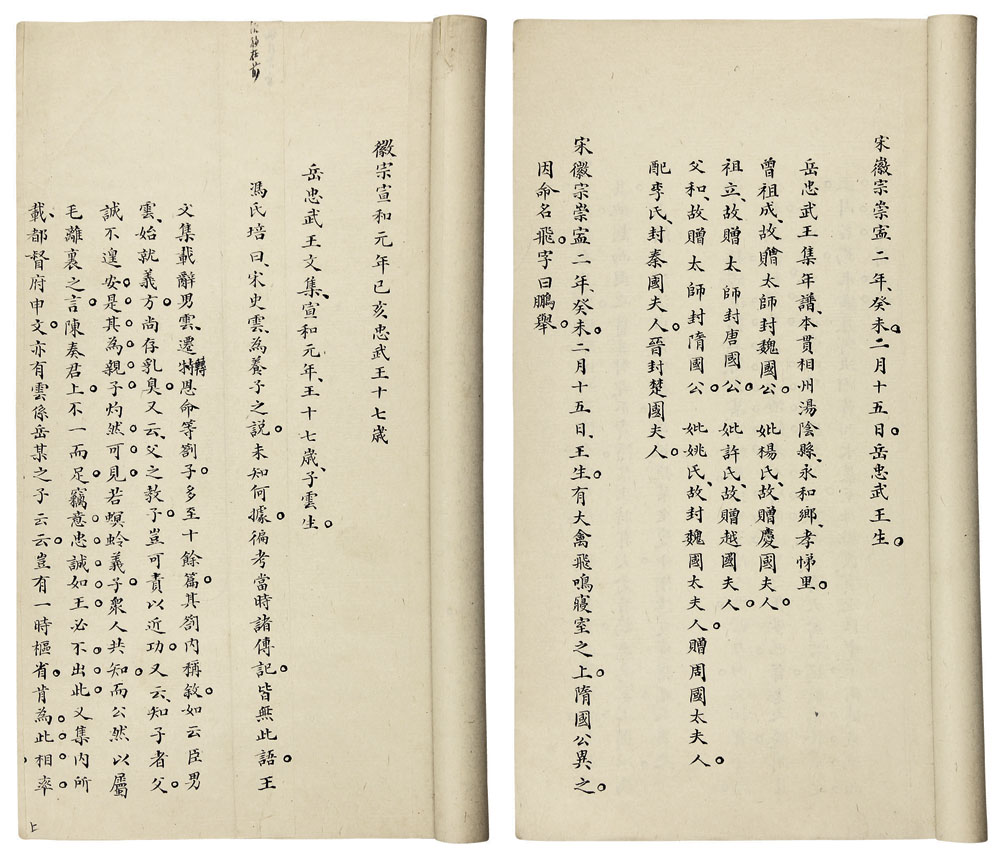 宋徽宗崇寍二年、癸未二月十五日。岳忠武王生。
岳忠武王集年譜、本貫相州湯陰縣、永和鄉、孝悌里。
曾祖成、故贈太師封魏國公。妣楊氏、故贈慶國夫人。
祖立、故贈太師封唐國公。妣許氏、故贈越國夫人。
父和、故贈太師封隋國公。妣姚氏、故封魏國太夫人。贈周國太夫人。
配李氏、封秦國夫人。晉封楚國夫人。
宋徽宗崇寍二年、癸未。二月十五日、王生。有大禽飛鳴寢室之上。隋國公異之。
因命名飛。字曰鵬舉。
徽宗宣和元年己亥忠武王十七歲
岳忠武王文集、宣和元年、王十七歲、子雲生。
馮氏培曰、宋史雲、為養子之說。未知何據。徧考當時諸傳記。皆無此語。王
文集載辭男雲、遷特轉恩命等劄子。多至十餘篇。其劄內稱敘。如云臣男
雲、始就義方。尚存乳臭。又云、父之教子。豈可責以近功。又云、知子者父。
誠不遑安。是其為親子灼然可見。若螟蛉義子。衆人共知。而公然以屬
毛離裏之言。陳奏君上。不一而足。竊意忠誠如王。必不出此。又集內所
載、都督府申文。亦有雲係岳某之子云云。豈有一時樞省。肯為此相率